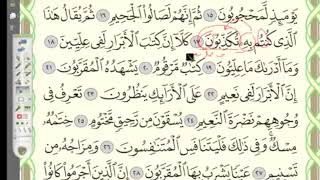 يَوْمَئِذٍ لَّمَحْجُوبُونَ ١٥ ثُمَّ إِنَّهُمْ لَصَالُوا۟ ٱلْجَحِيمِ ١٦ ثُمَّ يُقَالُ هَٰذَا
ٱلَّذِى كُنتُم بِهِۦ تُكَذِّبُونَ ١٧ كَلَّآ إِنَّ كِتَٰبَ ٱلْأَبْرَارِ لَفِى عِلِّيِّينَ ١٨
وَمَآ أَدْرَىٰكَ مَا عِلِّيُّونَ ١٩ كِتَٰبٌ مَّرْقُومٌ ٢٠ يَشْهَدُهُ ٱلْمُقَرَّبُونَ ٢١
إِنَّ ٱلْأَبْرَارَ لَفِى نَعِيمٍ ٢٢ عَلَى ٱلْأَرَآئِكِ يَنظُرُونَ ٢٣ تَعْرِفُ فِى
وُجُوهِهِمْ نَضْرَةَ ٱلنَّعِيمِ ٢٤ يُسْقَوْنَ مِن رَّحِيقٍ مَّخْتُومٍ ٢٥ خِتَٰمُهُۥ
مِسْكٌ وَفِى ذَٰلِكَ فَلْيَتَنَافَسِ ٱلْمُتَنَٰفِسُونَ ٢٦ وَمِزَاجُهُۥ مِن
تَسْنِيمٍ ٢٧ عَيْنًا يَشْرَبُ بِهَا ٱلْمُقَرَّبُونَ ٢٨ إِنَّ ٱلَّذِينَ أَجْرَمُوا۟ كَانُوا۟